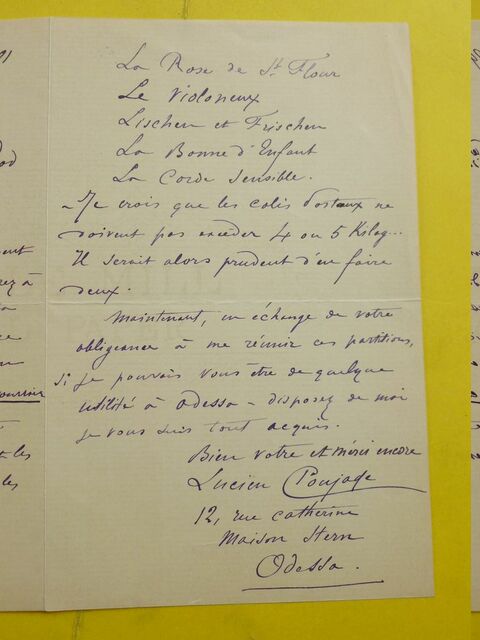 La Rose de St Flour
Le Violoneux
Lischen et Fritschen
La Bonne d'Enfant
La Corde sensible.
- Je crois que les colis postaux ne
doivent pas excéder 4 ou 5 Kilog...
Il serait alors prudent d'en faire
deux.
Maintenant, en échange de votre
obligeance à me réunir ces partitions,
si je pouvais vous être de quelque
utilité à Odessa - disposez de moi
je vous suis tout acquis.
Bien votre et merci encore
Lucien Poujade
12, rue Catherine
Maison Stern
Odessa.